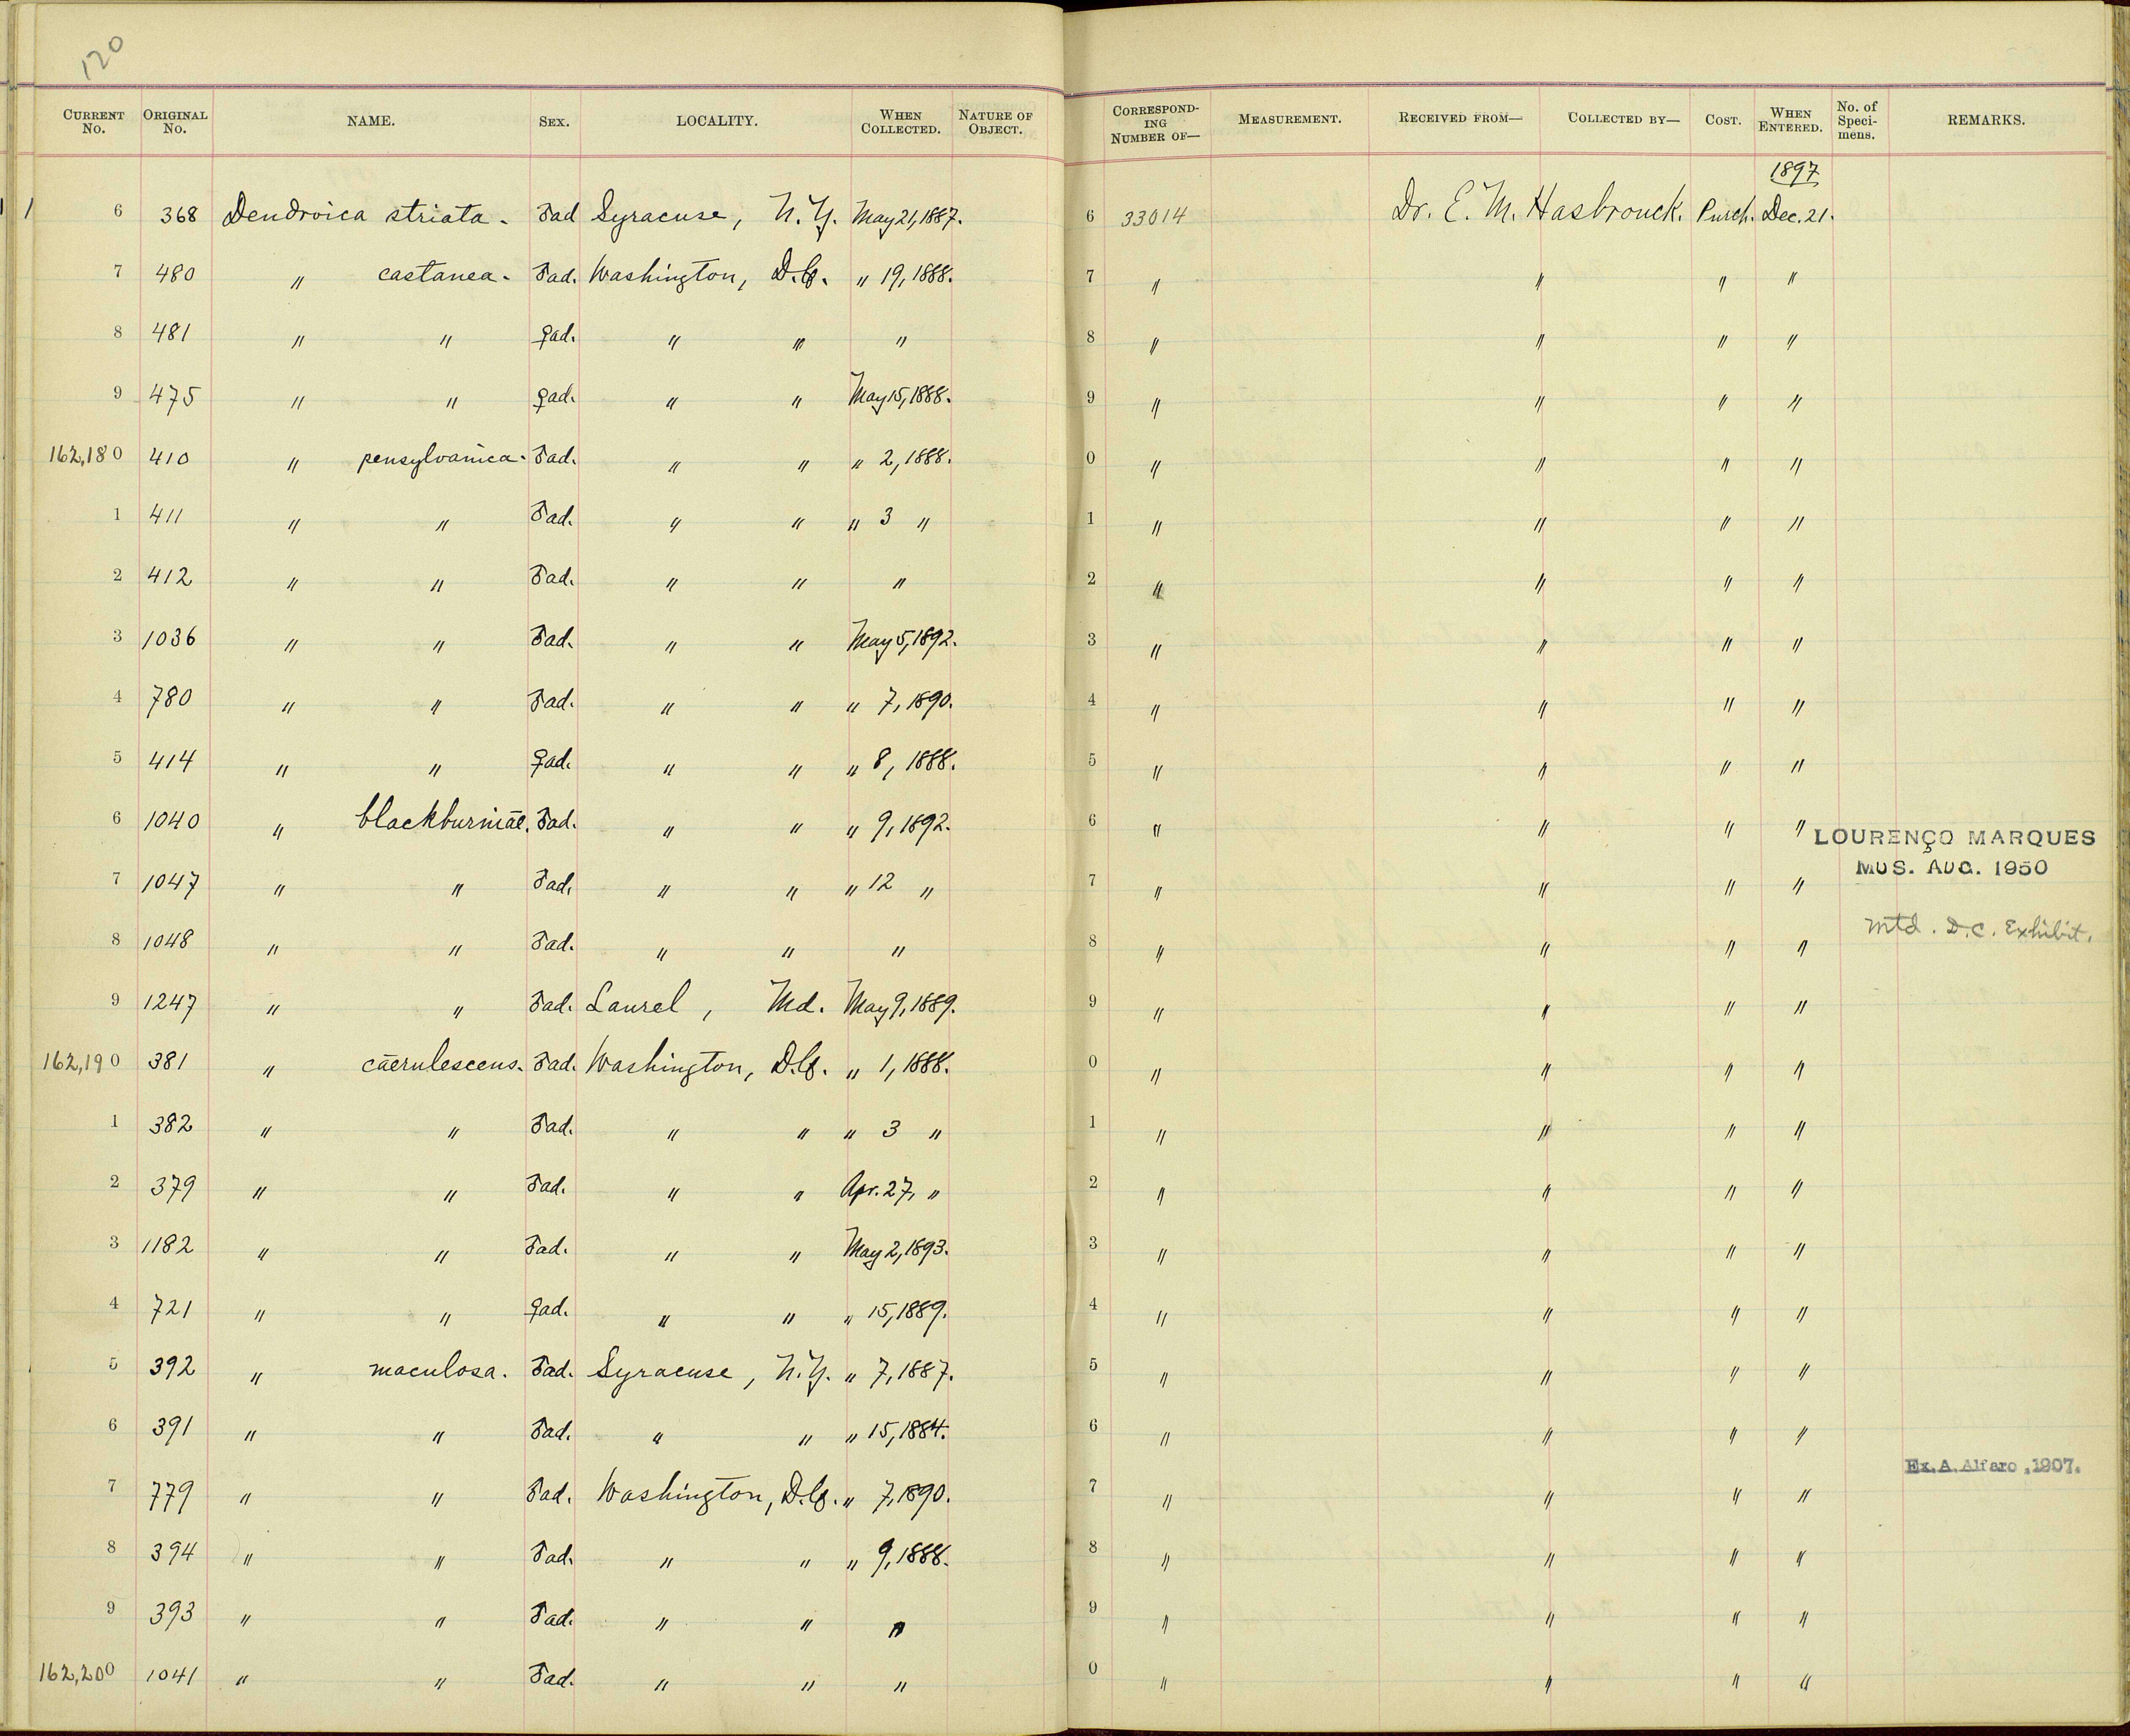 120
CURRENT No. ORIGINAL No. NAME. SEX. LOCALITY. WHEN COLLECTED. NATURE OF OBJECT. CORRESPONDING NUMBER OF— MEASUREMENT. RECEIVED FROM— COLLECTED BY— COST. WHEN ENTERED. No. of Specimens. REMARKS.
1897
6 368 Dendroica striata. ♂ad Syracuse, N.Y. May 21, 1887. 6 33014 Dr. E. M. Hasbrouck. Purch. Dec. 21.
7 480 " castanea. ♂ad. Washington, D.C. " 19, 1888. 7 " " " "
8 481 " " ♀ad. " " " 8 " " " "
9 475 " " ♀ad. " " May 15, 1888. 9 " " " "
162,180 410 " pensylvanica. ♂ad. " " " 2, 1888. 0 " " " "
1 411 " " ♂ad. " " " 3 " 1 " " " "
2 412 " " ♂ad. " " " 2 " " " "
3 1036 " " ♂ad. " " May 5, 1892. 3 " " " "
4 780 " " ♂ad. " " " 7, 1890. 4 " " " "
5 414 " " ♀ad. " " " 8, 1888. 5 " " " "
6 1040 " blackburniae. ♂ad. " " " 9, 1892. 6 " " " " LOURENÇO MARQUES
MUS. AUG. 1950
7 1047 " " ♂ad. " " " 12 " 7 " " " "
8 1048 " " ♂ad. " " " 8 " " " " Mtd. D.C. Exhibit.
9 1247 " " ♂ad. Laurel, Md. May 9, 1889. 9 " " " "
162,190 381 " caerulescens. ♂ad. Washington, D.C. " 1, 1888. 0 " " " "
1 382 " " ♂ad. " " " 3 " 1 " " " "
2 379 " " ♂ad. " " Apr. 27, " 2 " " " "
3 1182 " " ♂ad. " " May 2, 1893. 3 " " " "
4 721 " " ♀ad. " " " 15, 1889. 4 " " " "
5 392 " maculosa. ♂ad. Syracuse, N.Y. " 7, 1887. 5 " " " "
6 391 " " ♂ad. " " " 15, 1884. 6 " " " "
7 779 " " ♂ad. Washington, D.C. " 7, 1890. 7 " " " " Ex. A. Alfaro, 1907.
8 394 " " ♂ad. " " " 9, 1888. 8 " " " "
9 393 " " ♂ad. " " " 9 " " " "
162,200 1041 " " ♂ad. " " " 0 " " " "